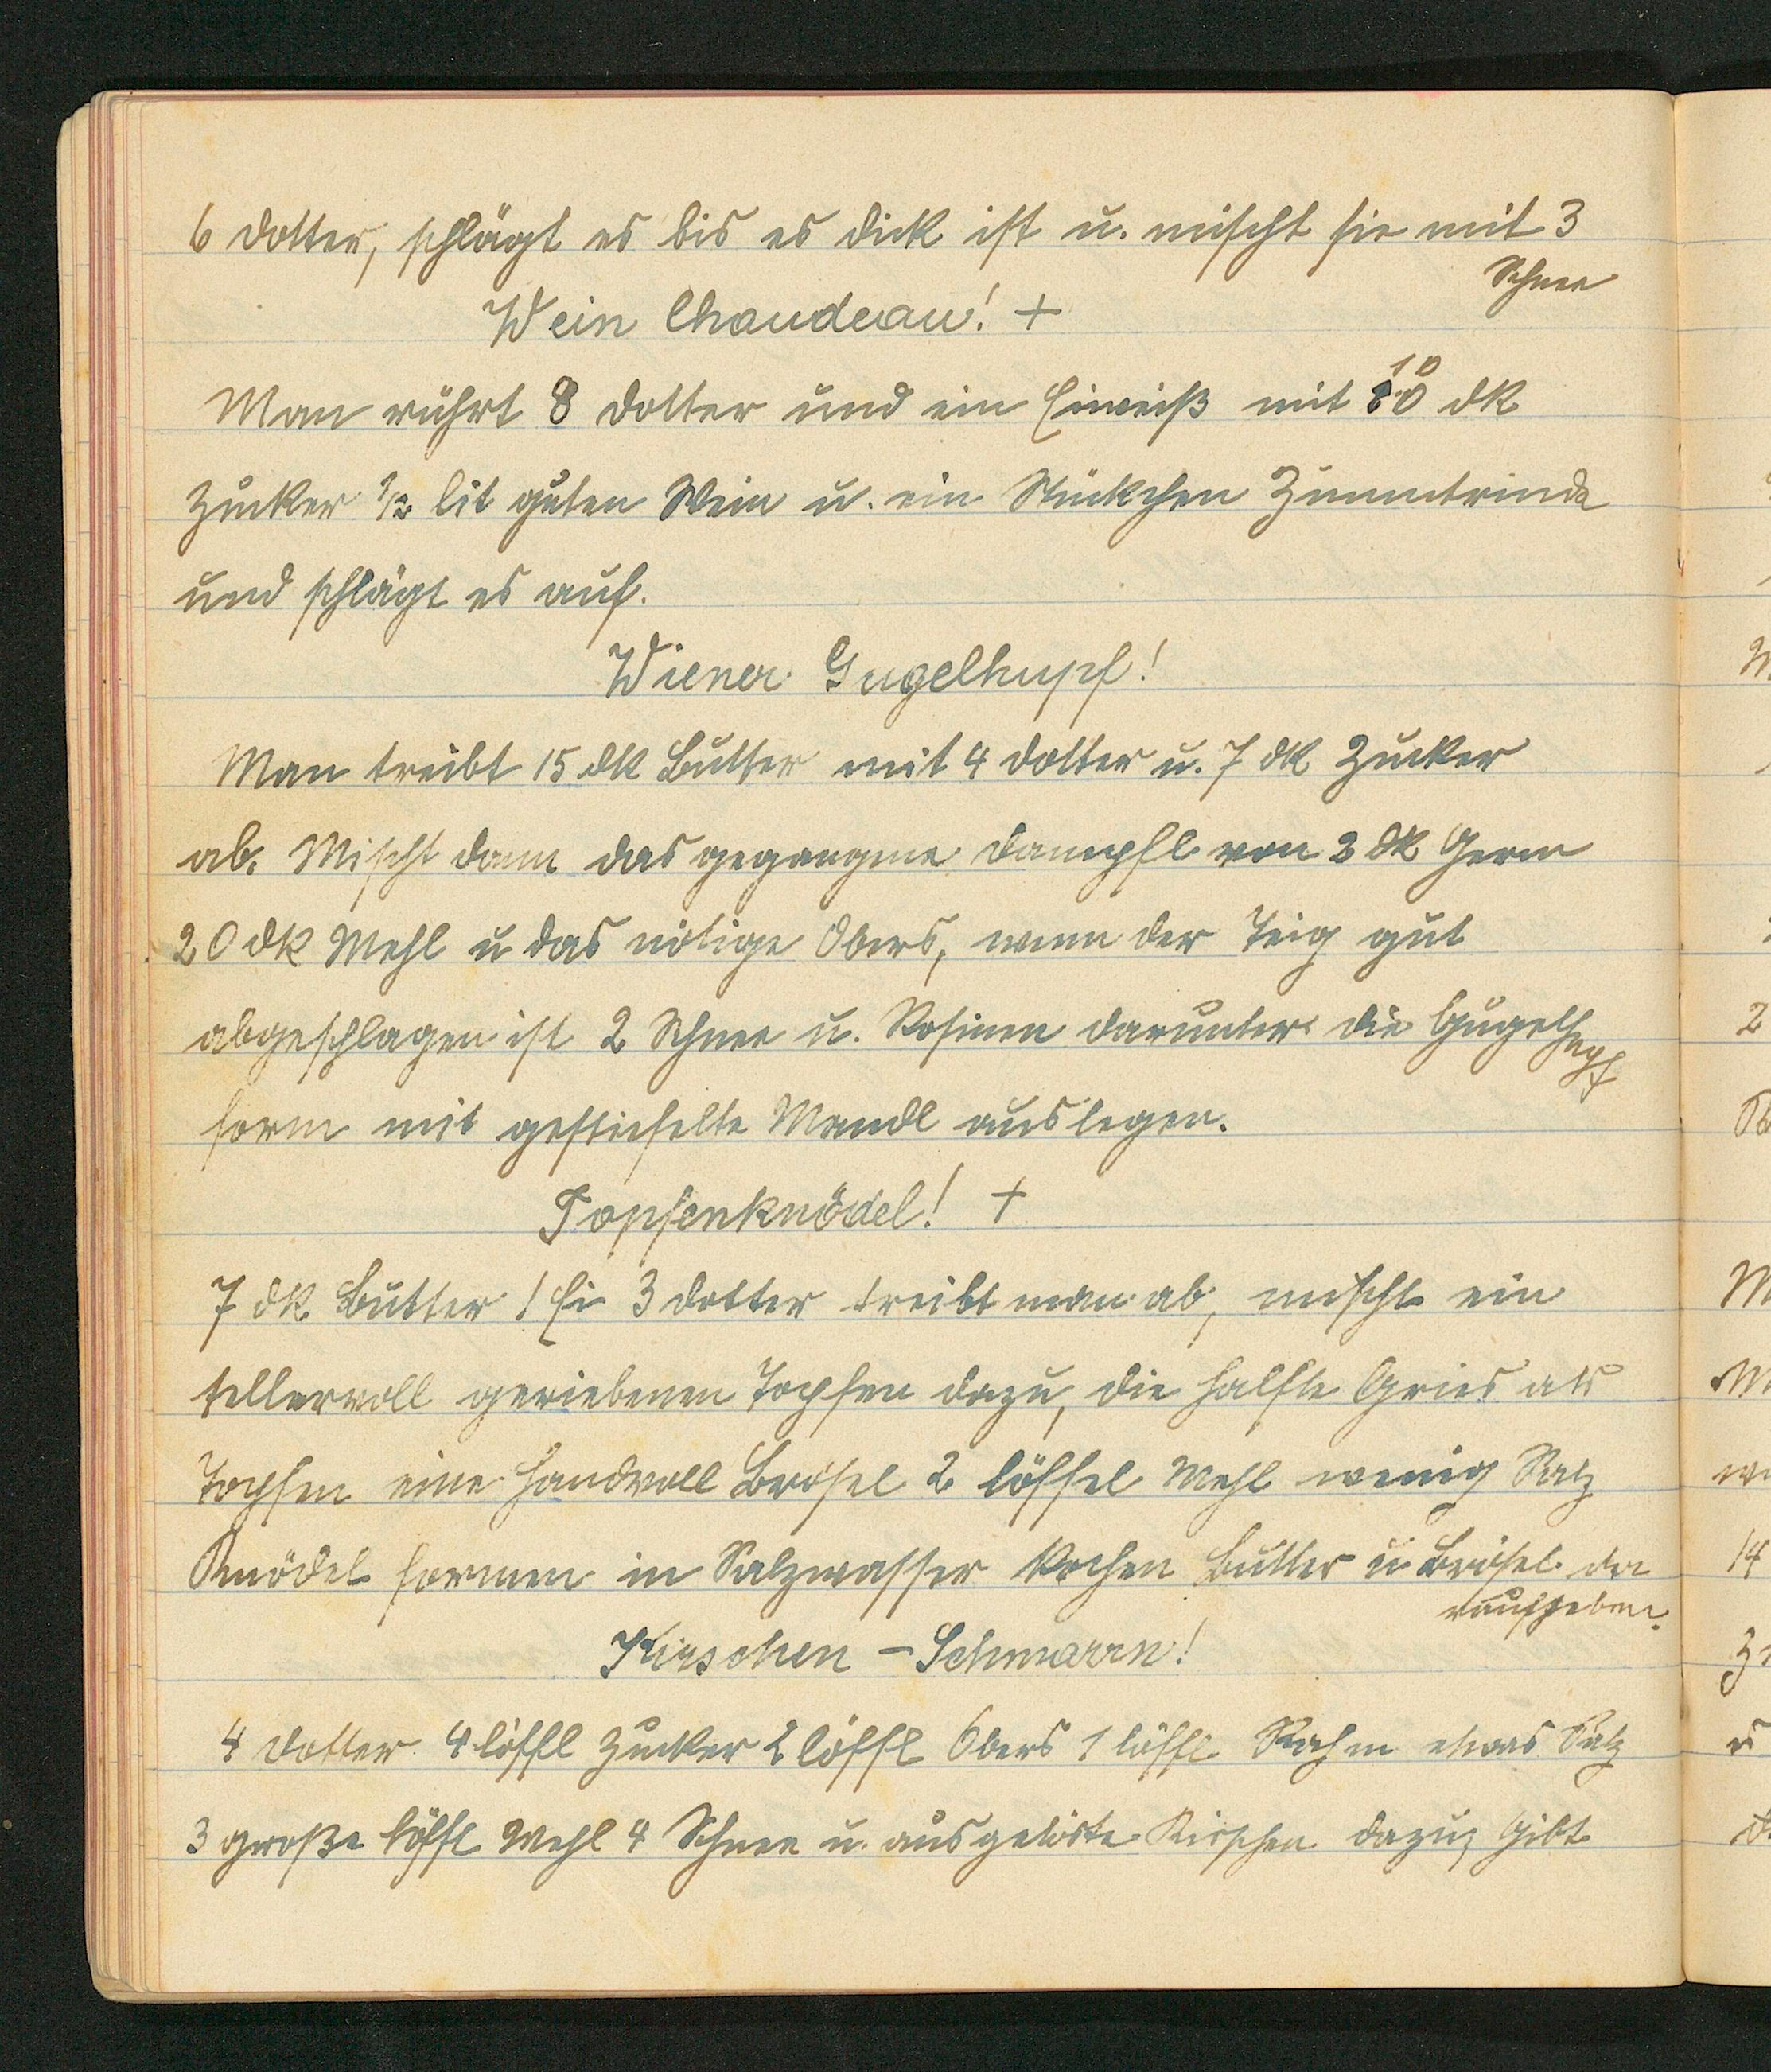 6 Dotter, schlägt es bis es dick ist u. mischt sie mit 3
Schnee
Wein Chaudeau! +
Man rührt 8 Dotter und ein Eiweiß mit 10 dk
Zucker ½ lit guten Wein u. ein Stückchen Zimmtrinde
und schlägt es auf.
Wiener Gugelhupf!
Man treibt 15 dk Butter mit 4 Dotter u. 7 dk Zucker
ab. Mischt dann das gegangene Dampfl von 2 dk Germ
20 dk Mehl u das nötige Obers, wenn der Teig gut
abgeschlagen ist 2 Schnee u. Rosinen darunter die Gugelhupf
form mit gestiefelte Mandl auslegen.
Topfenknödel! +
7 dk Butter 1 Ei 3 Dotter treibt man ab, mischt ein
tellervoll geriebenen Topfen dazu, die halfte Gries als
Topfen eine Handvoll Brösel 2 löffel Mehl wenig Salz
Knödel formen in Salzwasser kochen Butter u Brösel da
raufgeben.
Kirschen - Schmarrn!
4 Dotter 4 löffl Zucker 2 löffl Obers 1 löffl Rahm etwas Salz
3 große löffl Mehl 4 Schnee u. ausgelöste Kirschen dazu, gibt